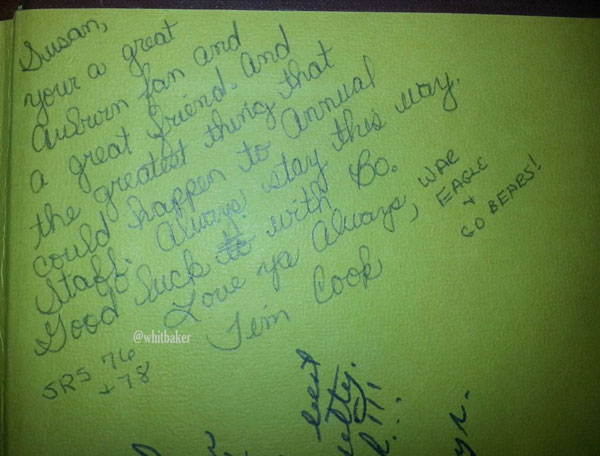 Susan,
your a great
Auburn fan and
a great friend. and
the greatest thing that
could happen to annual
Staff. Always stay this way.
Good luck with Bo.
Love ya Always,
Tim Cook
WAR
EAGLE
+
GO BEARS!
SRS 76
+78
@whitbaker